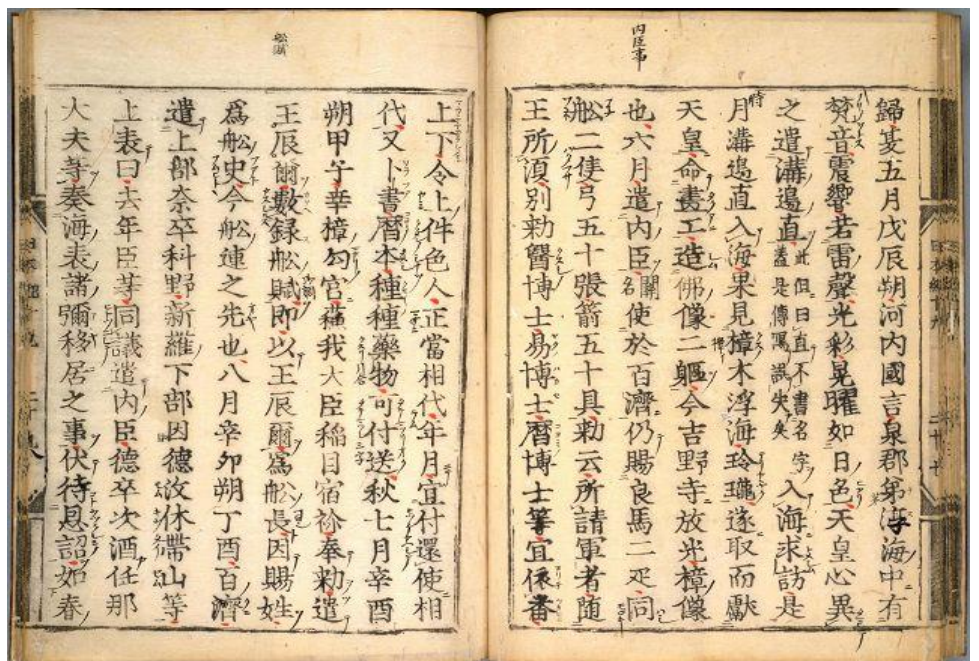 内臣事
歸夏五月戊辰朔河内國言泉郡茅渟海中有
梵音震響若雷聲光彩晃曜如日色天皇心異
之遣溝邊直此但曰直不書名字蓋是傳寫誤失矣入海求訪是
月溝邊直入海果見樟木浮海玲瓏遂取而獻
天皇命畫工造佛像二軀今吉野寺放光樟像
也六月遣内臣闕名使於百濟仍賜良馬二疋同
舩二隻弓五十張箭五十具勅云所請軍者随
王所湏別勅醫博士易博士暦博士等宜依番
舩賦
上下令上件色人正當相代年月宜付還使相
代又卜書暦本種種藥物可付送秋七月辛酉
朔甲子幸樟勾宮蘓我大臣稲目宿祢奉勅遣
王辰爾數録舩賦即以王辰爾爲舩長因賜姓
爲舩史今舩連之先也八月辛夘朔丁酉百濟
遣上部奈卒科野新羅下部固德汶休帶山等
上表曰去年臣等同議遣内臣德卒次酒任那
大夫等奏海表諸彌移居之事伏待恩詔如春